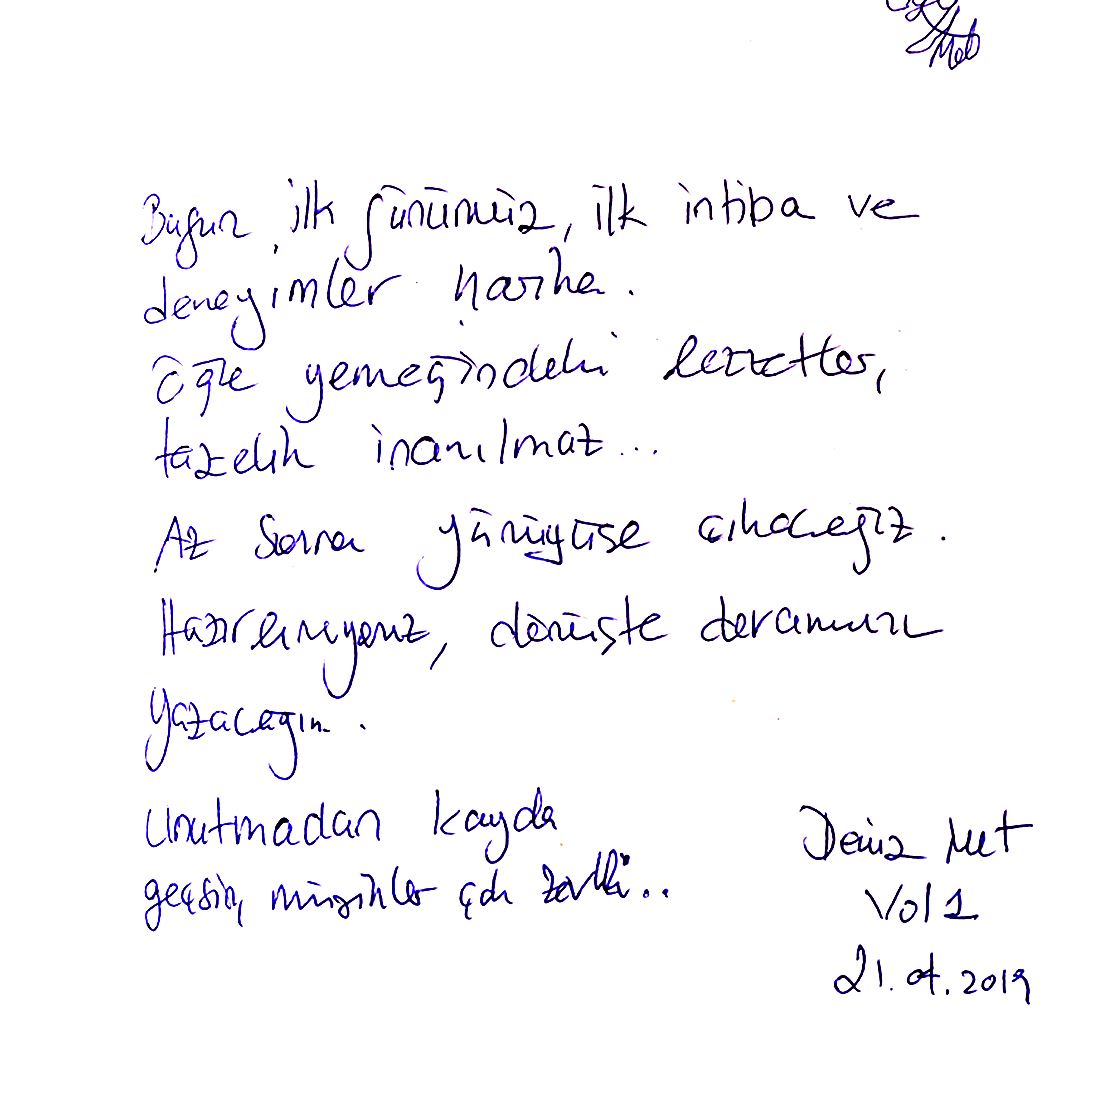 Bugün ilk günümüz, ilk intiba ve
deneyimler harika.
Öğle yemeğindeki lezzetler,
tazelik inanılmaz...
Az sonra yürüyüşe çıkacağız.
Hazırlanıyoruz, dönüşte devamını
yazacağım.
Unutmadan kayda
geçsin, müzikler çok zevkli..
Deniz Met
Vol 1
21.04.2019